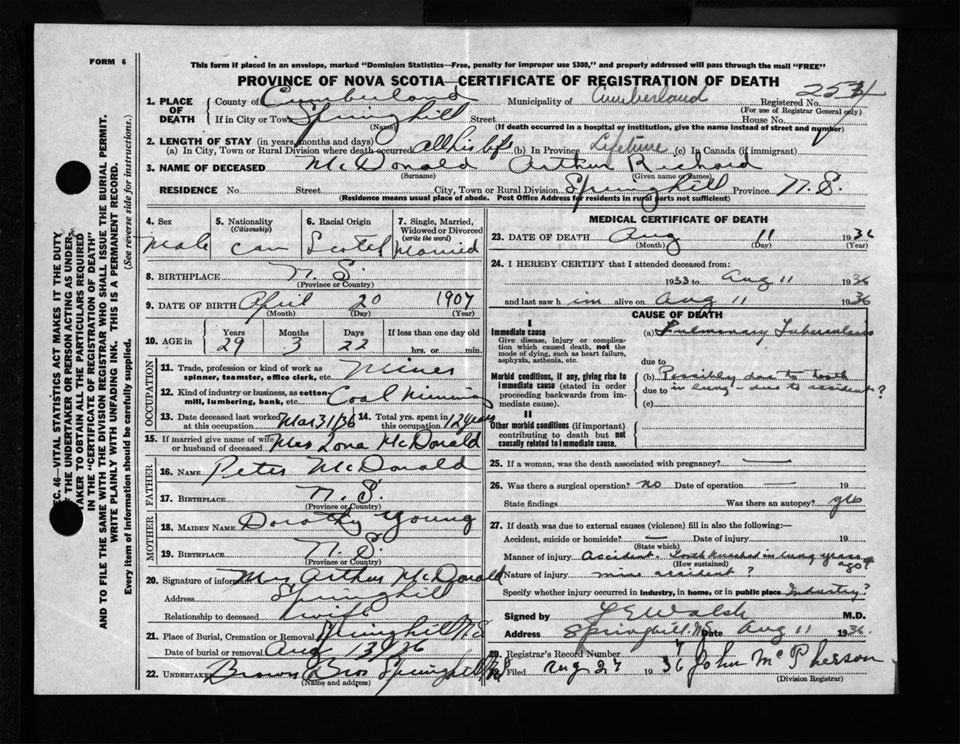 FORM 6
This form if placed in an envelope, marked "Dominion Statistics—Free, penalty for improper use $300," and properly addressed will pass through the mail "FREE"
PROVINCE OF NOVA SCOTIA—CERTIFICATE OF REGISTRATION OF DEATH
1. PLACE OF DEATH County of Cumberland Municipality of Cumberland Registered No. (For use of Registrar General only)
If in City or Town Springhill (Name) Street House No.
(If death occurred in a hospital or institution, give the name instead of street and number)
2. LENGTH OF STAY (in years, months and days)
(a) In City, Town or Rural Division where death occurred all his life (b) In Province Lifetime (c) In Canada (if immigrant)
3. NAME OF DECEASED McDonald Arthur Richard
(Surname) (Given name or names)
RESIDENCE No Street City, Town or Rural Division Springhill Province N.S.
(Residence means usual place of abode. Post Office Address for residents in rural parts not sufficient)
4. Sex Male
5. Nationality (Citizenship) Can
6. Racial Origin Scotch
7. Single, Married, Widowed or Divorced (write the word) Married
8. BIRTHPLACE N.S.
(Province or Country)
9. DATE OF BIRTH April 20 1907
(Month) (Day) (Year)
10. AGE in Years 29 Months 3 Days 22 If less than one day old hrs. or min.
OCCUPATION
11. Trade, profession or kind of work as spinner, teamster, office clerk, etc. Miner
12. Kind of industry or business, as cotton mill, lumbering, bank, etc. Coal Mining
13. Date deceased last worked at this occupation Mar 31/36 14. Total yrs. spent in this occupation 12 years
15. If married give name of wife or husband of deceased Mrs Zona McDonald
FATHER
16. NAME Peter McDonald
17. BIRTHPLACE N.S.
(Province or Country)
MOTHER
18. MAIDEN NAME Dorothy Young
19. BIRTHPLACE N.S.
(Province or Country)
20. Signature of informant Mrs Arthur McDonald
Address Springhill
Relationship to deceased wife
21. Place of Burial, Cremation or Removal Springhill N.S
Date of burial or removal Aug 13/36
22. UNDERTAKER Brown Bros Springhill N.S
(Name and address)
MEDICAL CERTIFICATE OF DEATH
23. DATE OF DEATH Aug 11 1936
(Month) (Day) (Year)
24. I HEREBY CERTIFY that I attended deceased from:
1933 to Aug 11 1936
and last saw him alive on Aug 11 1936
CAUSE OF DEATH
I
Immediate cause (a) Pulmonary Tuberculosis
Give disease, injury or complication which caused death, not the mode of dying, such as heart failure, asphyxia, asthenia, etc.
due to
Morbid conditions, if any, giving rise to immediate cause (stated in order proceeding backwards from immediate cause).
(b) Possibly due to tooth
due to in lung due to accident?
(c)
II
Other morbid conditions (if important) contributing to death but not causally related to immediate cause.
25. If a woman, was the death associated with pregnancy? —
26. Was there a surgical operation? no Date of operation — 19
State findings Was there an autopsy? yes
27. If death was due to external causes (violence) fill in also the following:
Accident, suicide or homicide? — Date of injury 19
(State which)
Manner of injury Accident. Tooth knocked in lung years ago?
(How sustained)
Nature of injury mine accident?
Specify whether injury occurred in industry, in home, or in public place Industry?
Signed by Walsh M.D.
Address Springhill N.S. Date Aug 11 1936.
28. Registrar's Record Number
Filed Aug 27 1936 John McPherson
(Division Registrar)
SEC. 46—VITAL STATISTICS ACT MAKES IT THE DUTY
OF THE UNDERTAKER OR PERSON ACTING AS UNDER-
TAKER TO OBTAIN ALL THE PARTICULARS REQUIRED
IN THE "CERTIFICATE OF REGISTRATION OF DEATH"
AND TO FILE THE SAME WITH THE DIVISION REGISTRAR WHO SHALL ISSUE THE BURIAL PERMIT.
WRITE PLAINLY WITH UNFADING INK. THIS IS A PERMANENT RECORD.
Every item of information should be carefully supplied. (See reverse side for instructions.)